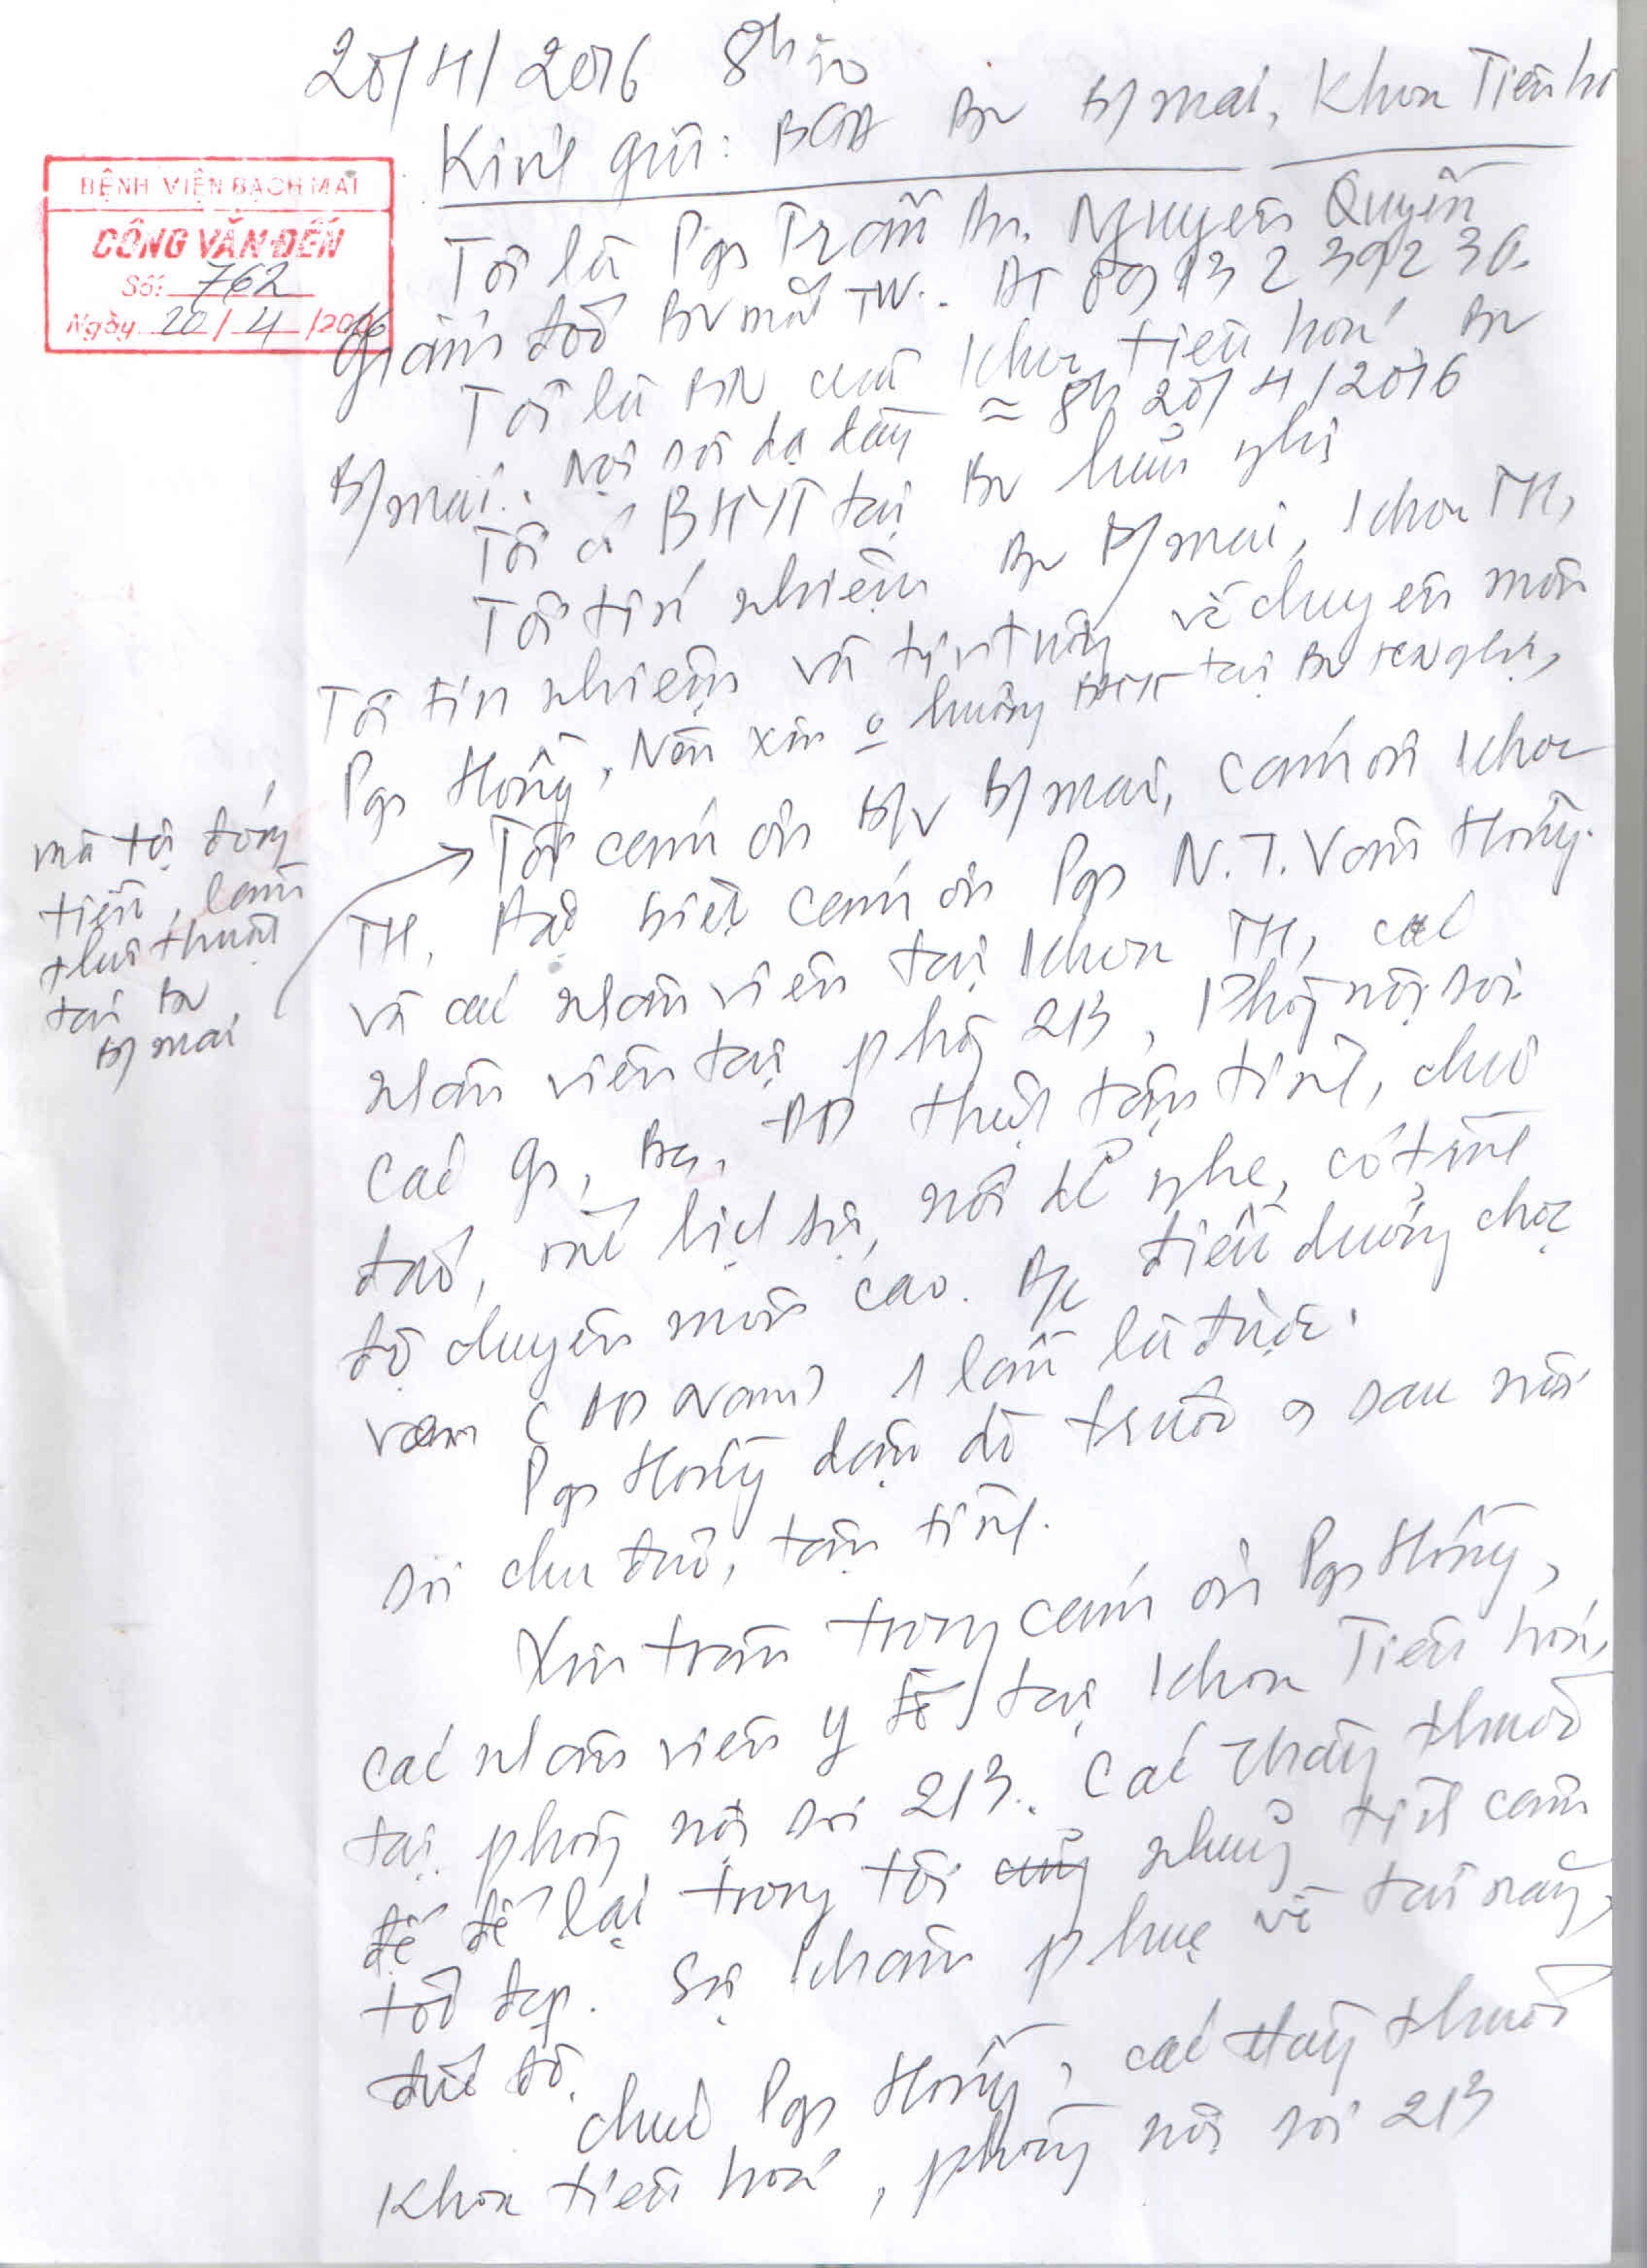 20/4/2016 8h
Kính gửi: BGĐ BV B/mai, Khoa Tiêu hó
BỆNH VIỆN BẠCH MAI
CÔNG VĂN ĐẾN
Số: 762
Ngày 20/4/2016
Tôi là Pgs Trần An. Nguyên Quyền
Giám đốc BV mắt TW. ĐT 0913 239230.
Tôi là BN của khoa tiêu hoá BV
B/mai. Nội soi dạ dày ≈ 8h 20/4/2016
Tôi có BHYT tại BV hữu nghị
Tôi tín nhiệm BV B/mai, khoa TH,
Tôi tín nhiệm và tin tưởng về chuyên môn
Pgs Hồng, Nên xin o hưởng BHYT tại BV HN ghị,
mà tự đóng
tiền, làm
thủ thuật
tại BV
B/mai
Tôi cám ơn B/v B/mai, cám ơn khoa
TH, Đặc biệt cám ơn Pgs N.T. Vân Hồng.
và các nhân viên tại khoa TH, các
nhân viên tại phòng 213, Phòng nội soi
Các Gs, Bs, ĐD thật tận tình, chu
đáo, rất lịch sự, nói dễ nghe, có trình
độ chuyên môn cao. điều dưỡng chọc
ven (ĐD Nam) 1 lần là được.
Pgs Hồng dặn dò trước & sau nội
soi chu đáo, tận tình.
Xin trân trọng cám ơn Pgs Hồng,
các nhân viên y tế tại khoa Tiêu hoá,
tại phòng nội soi 213. Các thầy thuốc
để lại trong tôi những tình cảm
tốt đẹp. Sự khâm phục về tài năng,
đức độ.
Chúc Pgs Hồng, các thầy thuốc
Khoa tiêu hoá, phòng nội soi 213